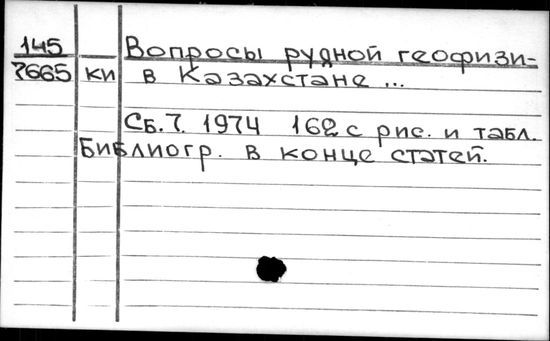 145 Вопросы рудной геофизи-
7665 ки в Казахстане ...
Сб. 7. 1974 162 с рис. и табл.
Библиогр. в конце статей.